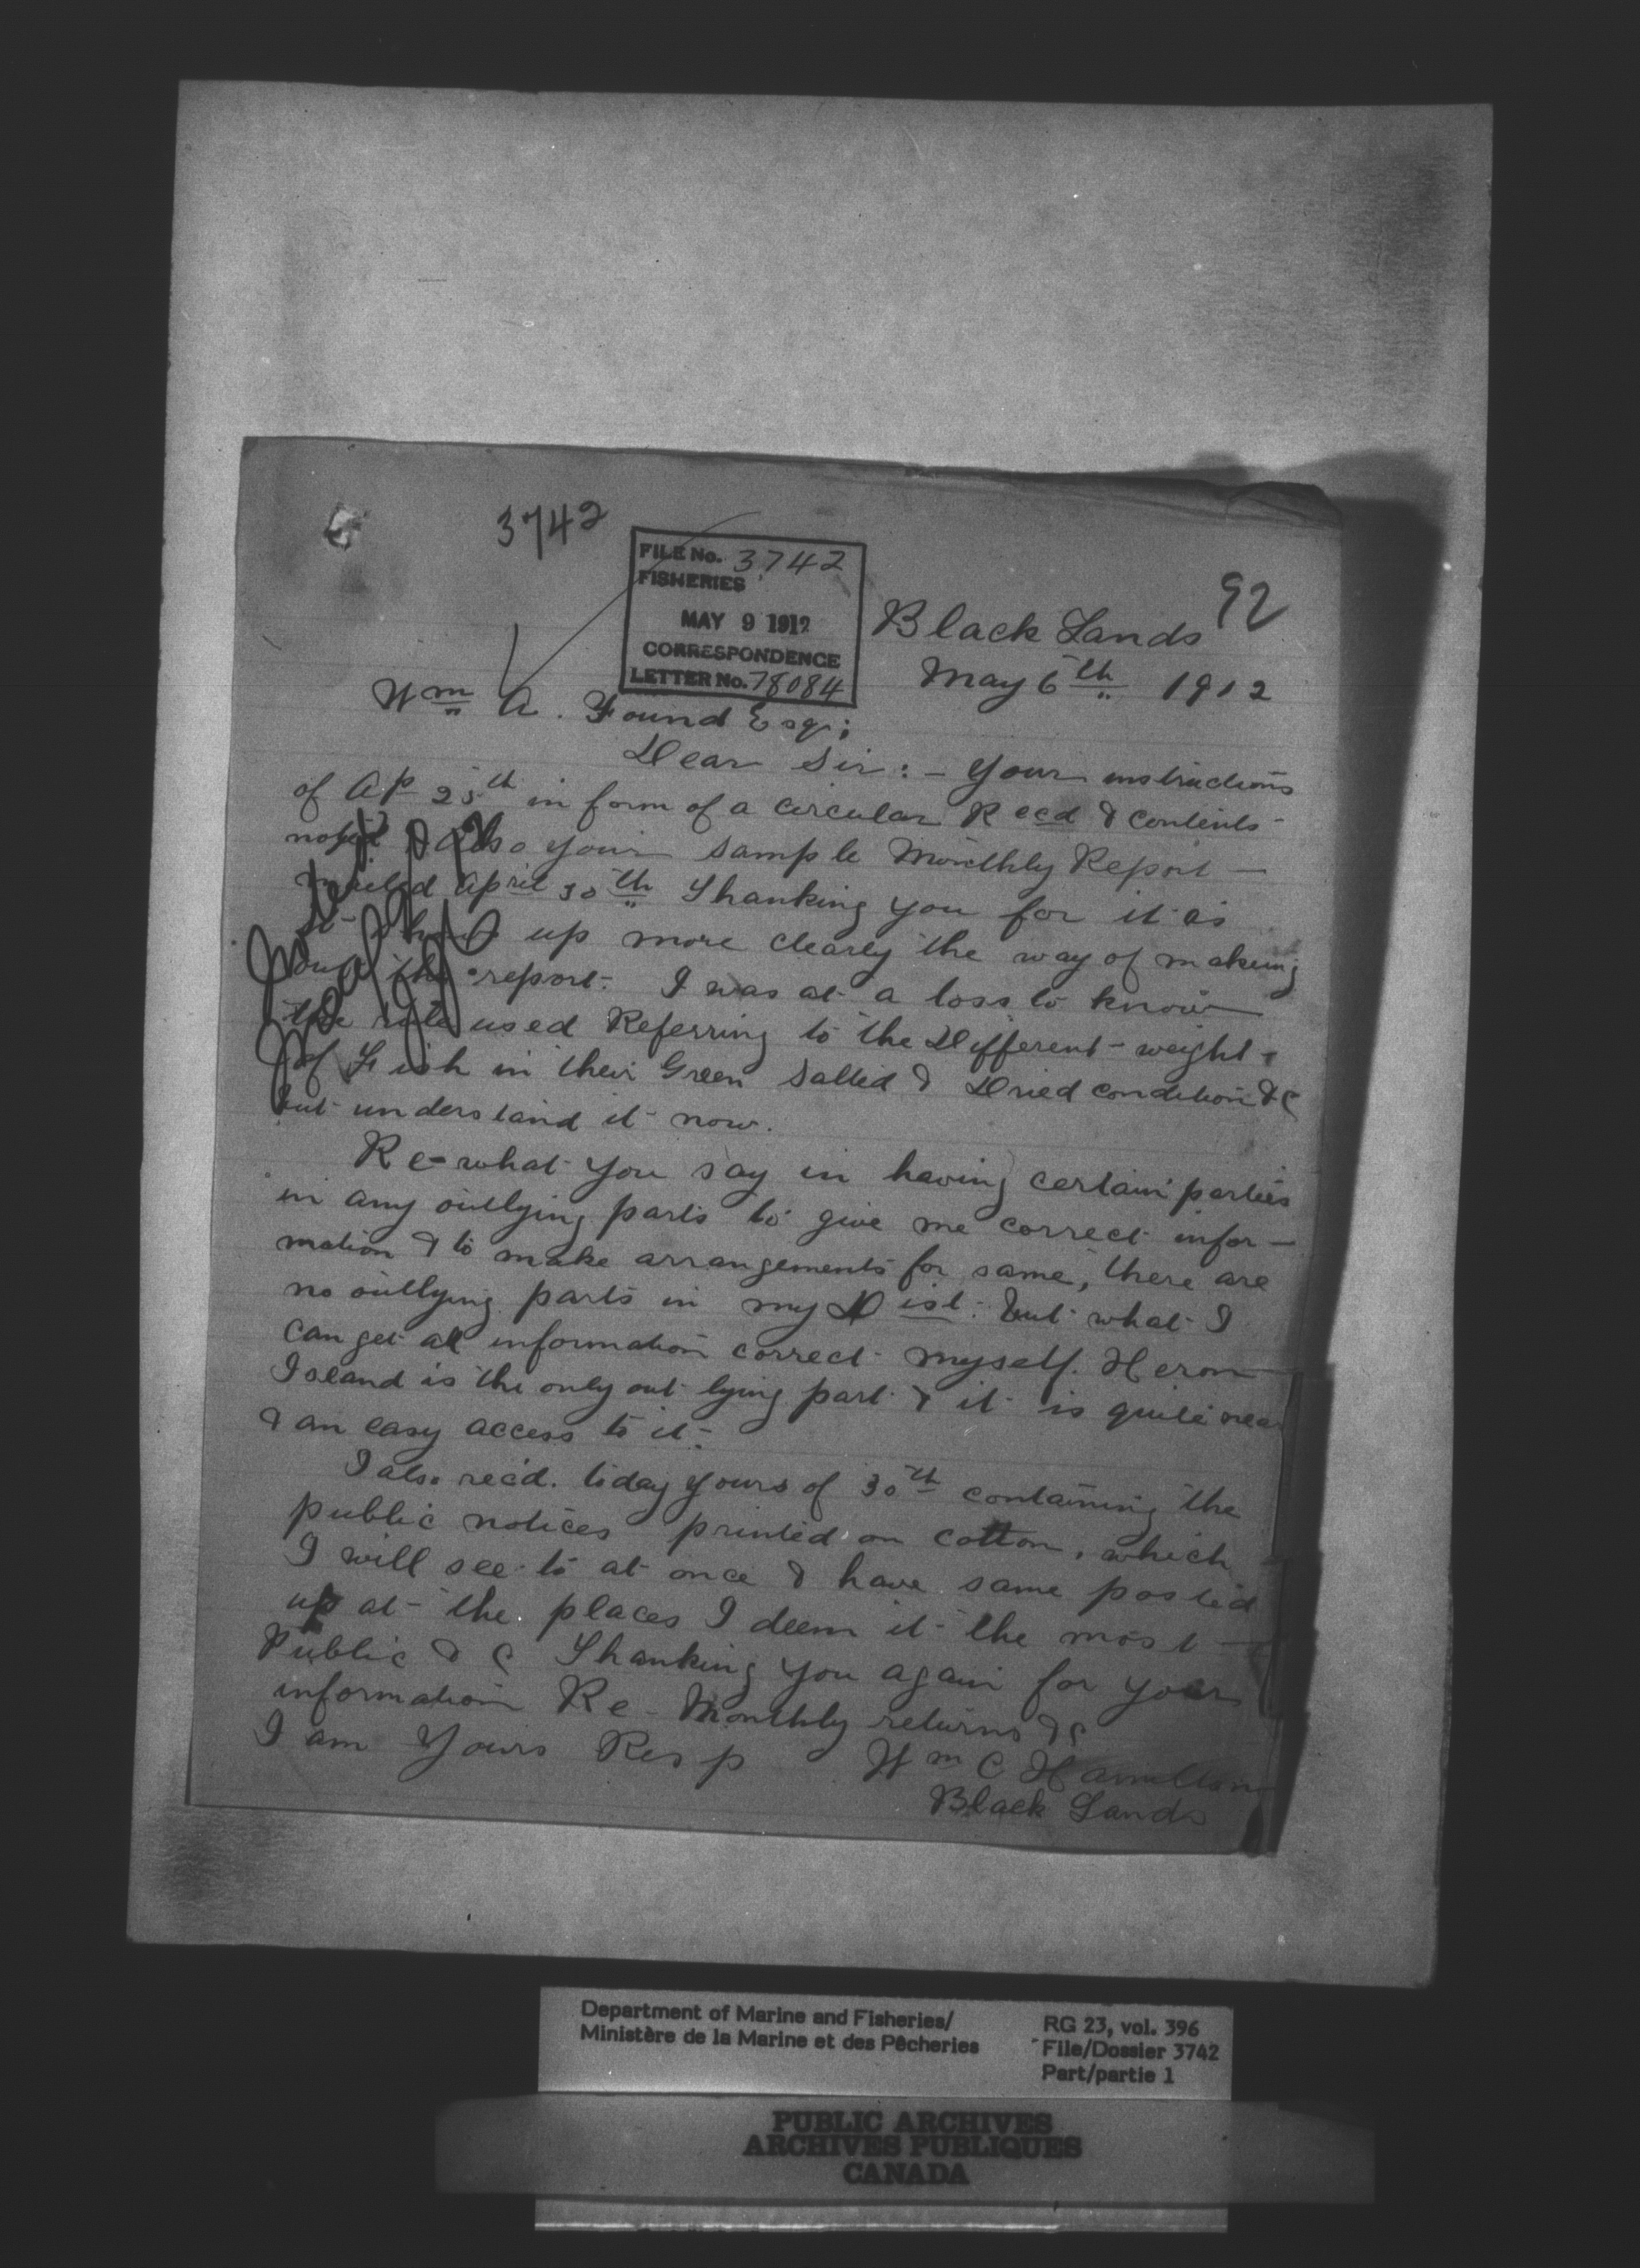 3742
FILE No. 3742
FISHERIES
MAY 9 1912
CORRESPONDENCE
LETTER No. 78084
92
Black Lands
May 6th 1912
Wm A. Found Esq;
Dear Sir: - Your instructions
of Ap 25th in form of a circular Recd & contents
noted & also your sample Monthly Report -
mailed April 30th Thanking you for it as
it shows up more clearly the way of makeing
the report. I was at a loss to know
the rule used Referring to the Different weights
of Fish in their Green Salted & Dried condition &c
but understand it now.
Re-what you say in having certain parties
in any outlying parts to give me correct infor-
mation & to make arrangements for same, there are
no outlying parts in my Dist. but what I
can get all information correct myself. Heron
Island is the only out lying part & it is quite near
& an easy access to it.
I also rec'd. today yours of 30th containing the
public notices printed on cotton, which
I will see to at once & have same posted
up at the places I deem it the most
Public & c Thanking you again for your
information Re-Monthly returns &c
I am Yours Resp Wm C Hamilton
Black Lands
Department of Marine and Fisheries/
Ministère de la Marine et des Pêcheries
RG 23, vol. 396
File/Dossier 3742
Part/partie 1
PUBLIC ARCHIVES
ARCHIVES PUBLIQUES
CANADA